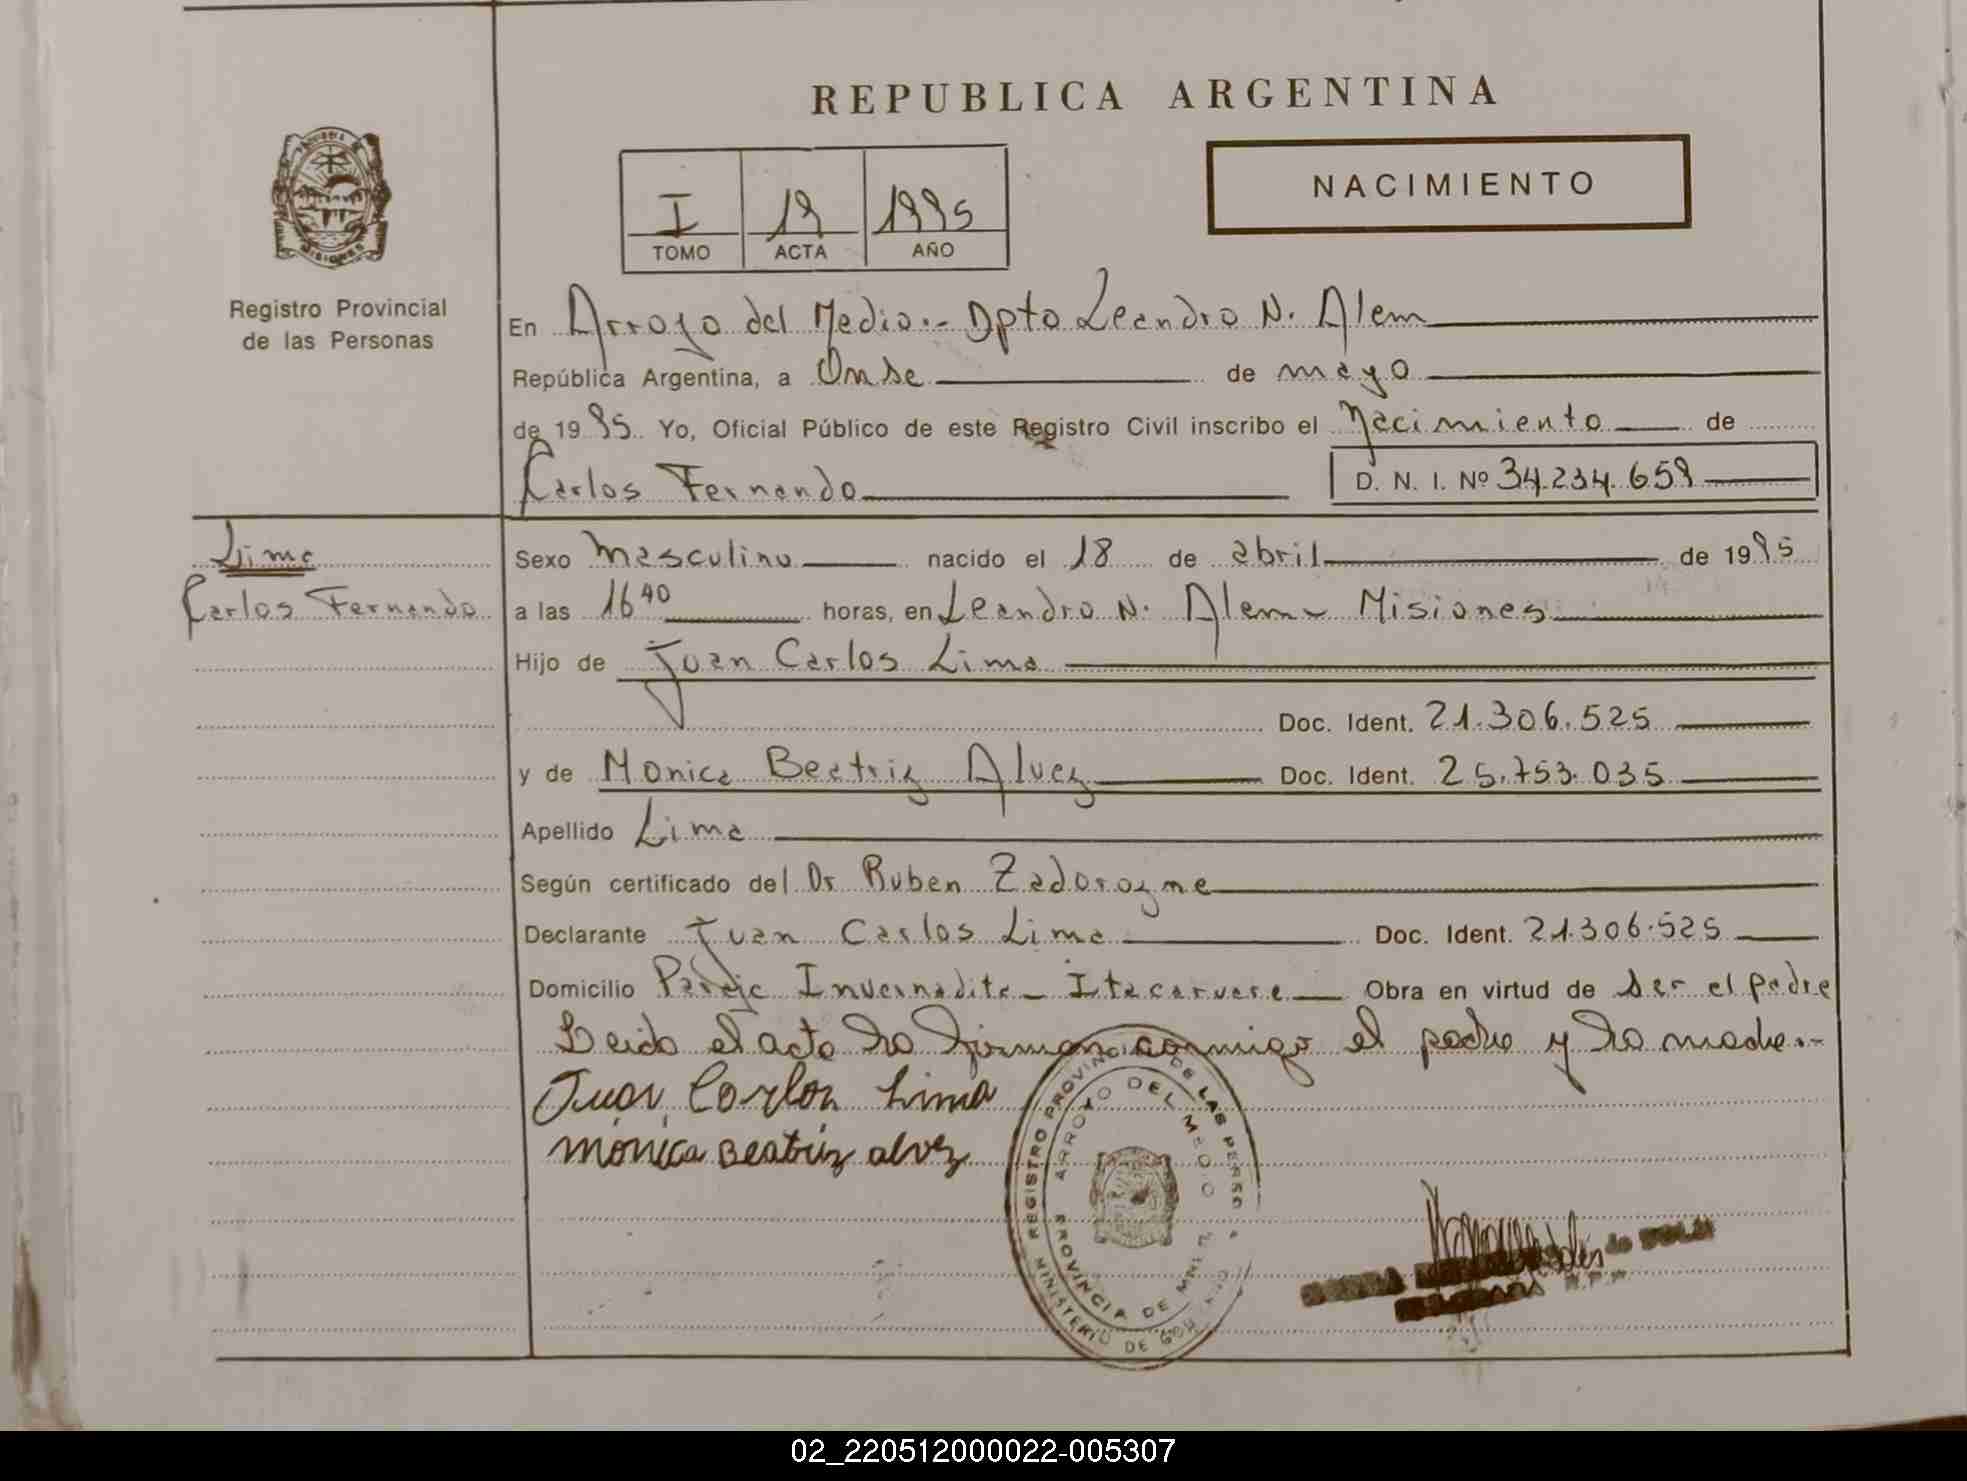 REPUBLICA ARGENTINA
NACIMIENTO
I 19 1995
TOMO ACTA AÑO
Registro Provincial
de las Personas
En Arroyo del Medio.- Dpto Leandro N. Alem
República Argentina, a Onse de mayo
de 1995. Yo, Oficial Público de este Registro Civil inscribo el Nacimiento de
Carlos Fernando D. N. I. Nº 34.234.659
Lima
Carlos Fernando
Sexo Masculino nacido el 18 de abril de 1995
a las 16 40 horas, en Leandro N. Alem - Misiones
Hijo de Juan Carlos Lima
Doc. Ident. 21.306.525
y de Monica Beatriz Alvez Doc. Ident. 25.753.035
Apellido Lima
Según certificado del Dr Ruben Zadorozne
Declarante Juan Carlos Lima Doc. Ident. 21.306.525
Domicilio Paraje Invernadita - Itacaruare Obra en virtud de ser el padre
Leida el acta la firman conmigo el padre y la madre.-
Juan Carlos Lima
Mónica Beatriz alvez
REGISTRO PROVINCIAL DE LAS PERSO
ARROYO DEL MEDIO
PROVINCIA DE
MINISTERIO DE
02_220512000022-005307